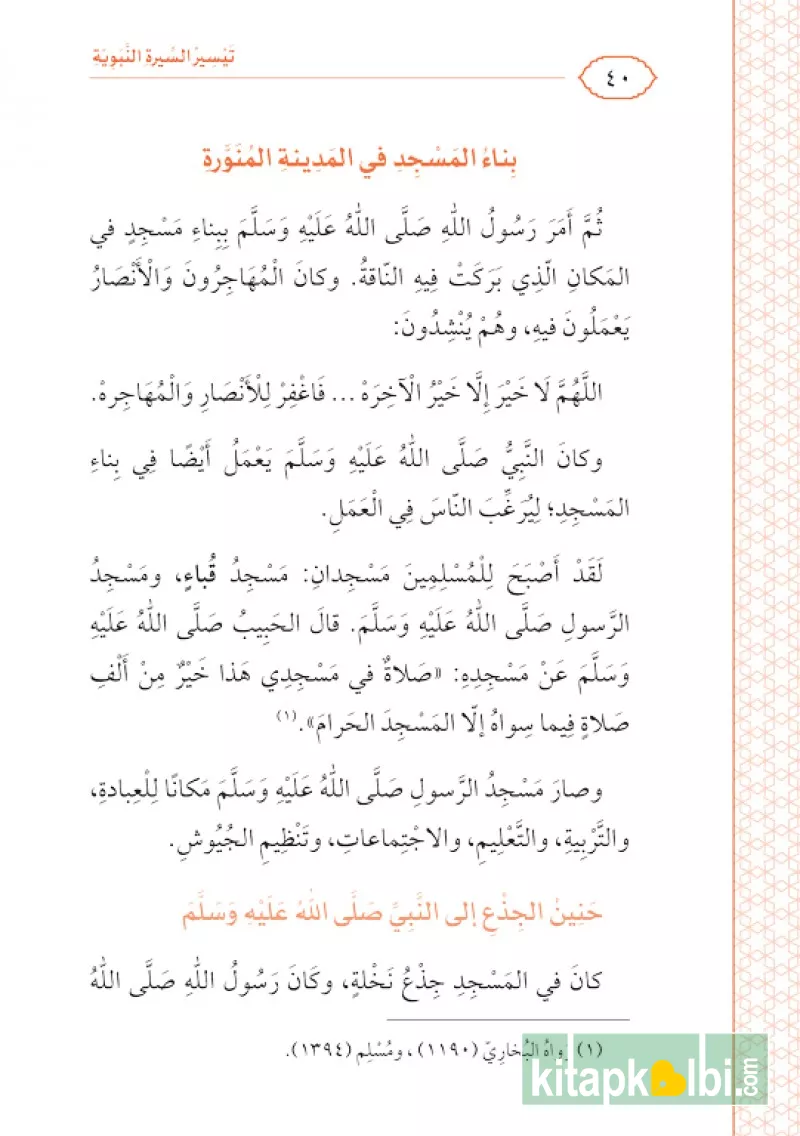 تَيْسِيرُ السِّيرةِ النَّبَوِيَةِ
٤٠
بِناءُ المَسْجِدِ في المَدِينةِ المُنَوَّرةِ
ثُمَّ أَمَرَ رَسُولُ اللهِ صَلَّى اللهُ عَلَيْهِ وَسَلَّمَ بِبِناءِ مَسْجِدٍ في
المَكانِ الّذِي بَرَكَتْ فِيهِ النّاقةُ. وكانَ الْمُهَاجِرُونَ وَالْأَنْصَارُ
يَعْمَلُونَ فيهِ، وهُمْ يُنْشِدُونَ:
اللَّهُمَّ لَا خَيْرَ إِلَّا خَيْرُ الْآخِرَهْ ... فَاغْفِرْ لِلْأَنْصَارِ وَالْمُهَاجِرهْ.
وكانَ النَّبِيُّ صَلَّى اللهُ عَلَيْهِ وَسَلَّمَ يَعْمَلُ أَيْضًا فِي بِناءِ
المَسْجِدِ؛ لِيُرَغِّبَ النّاسَ فِي الْعَمَلِ.
لَقَدْ أَصْبَحَ لِلْمُسْلِمِينَ مَسْجِدانِ: مَسْجِدُ قُباءٍ، ومَسْجِدُ
الرَّسولِ صَلَّى اللهُ عَلَيْهِ وَسَلَّمَ. قالَ الحَبِيبُ صَلَّى اللهُ عَلَيْهِ
وَسَلَّمَ عَنْ مَسْجِدِهِ: «صَلاةٌ في مَسْجِدِي هَذا خَيْرٌ مِنْ أَلْفِ
صَلاةٍ فِيما سِواهُ إلّا المَسْجِدَ الحَرامَ».(١)
وصارَ مَسْجِدُ الرَّسولِ صَلَّى اللهُ عَلَيْهِ وَسَلَّمَ مَكانًا لِلْعِبادةِ،
والتَّرْبِيةِ، والتَّعْلِيمِ، والاجْتِماعاتِ، وتَنْظِيمِ الجُيُوشِ.
حَنِينُ الجِذْعِ إلى النَّبِيِّ صَلَّى اللهُ عَلَيْهِ وَسَلَّمَ
كانَ في المَسْجِدِ جِذْعُ نَخْلةٍ، وكَانَ رَسُولُ اللهِ صَلَّى اللهُ
(١) رَواهُ البُخارِيّ (١١٩٠)، ومُسْلِم (١٣٩٤).
kitapkalbi.com